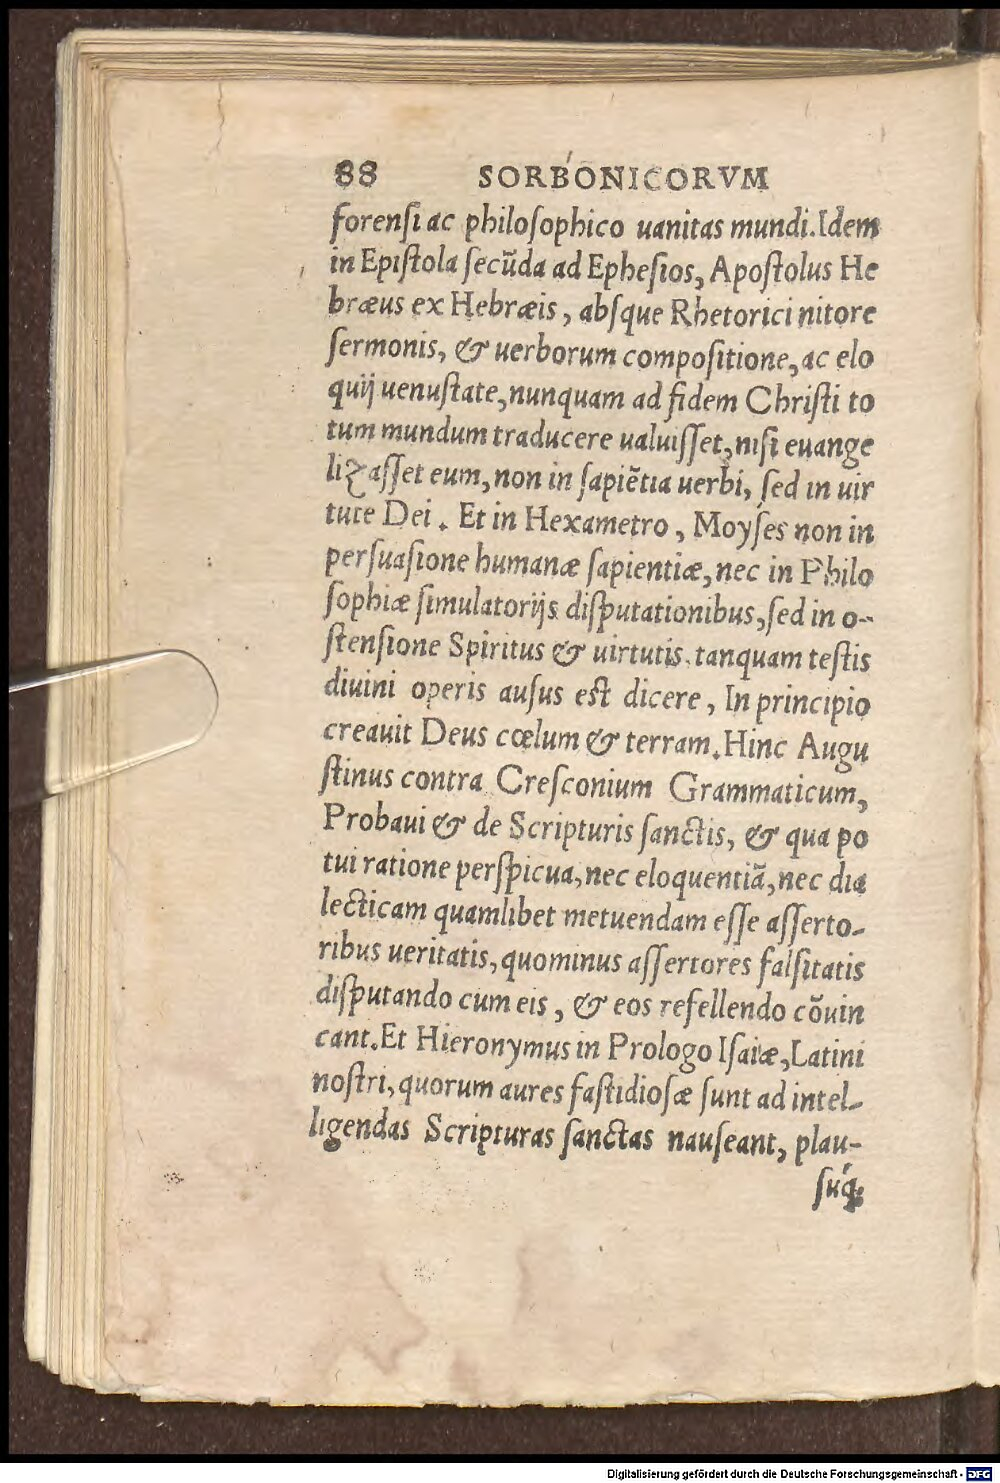 88 SORBONICORVM
forenſi ac philoſophico uanitas mundi. Idem
in Epiſtola ſecũda ad Epheſios, Apoſtolus He
bræus ex Hebræis, abſque Rhetorici nitore
ſermonis, & uerborum compoſitione, ac elo
quij uenuſtate, nunquam ad fidem Chriſti to
tum mundum traducere ualuiſſet, niſi euange
lizaſſet eum, non in ſapiẽtia uerbi, ſed in uir
tute Dei. Et in Hexametro, Moyſes non in
perſuaſione humanæ ſapientiæ, nec in Philo
ſophiæ ſimulatorijs diſputationibus, ſed in o-
ſtenſione Spiritus & uirtutis, tanquam teſtis
diuini operis auſus eſt dicere, In principio
creauit Deus cœlum & terram. Hinc Augu
ſtinus contra Creſconium Grammaticum,
Probaui & de Scripturis ſanctis, & qua po
tui ratione perſpicua, nec eloquentiã, nec dia
lecticam quamlibet metuendam eſſe aſſerto-
ribus ueritatis, quominus aſſertores falſitatis
diſputando cum eis, & eos refellendo cõuin
cant. Et Hieronymus in Prologo Iſaiæ, Latini
noſtri, quorum aures faſtidioſæ ſunt ad intel-
ligendas Scripturas ſanctas nauſeant, plau-
Digitalisierung gefördert durch die Deutsche Forschungsgemeinschaft - DFG